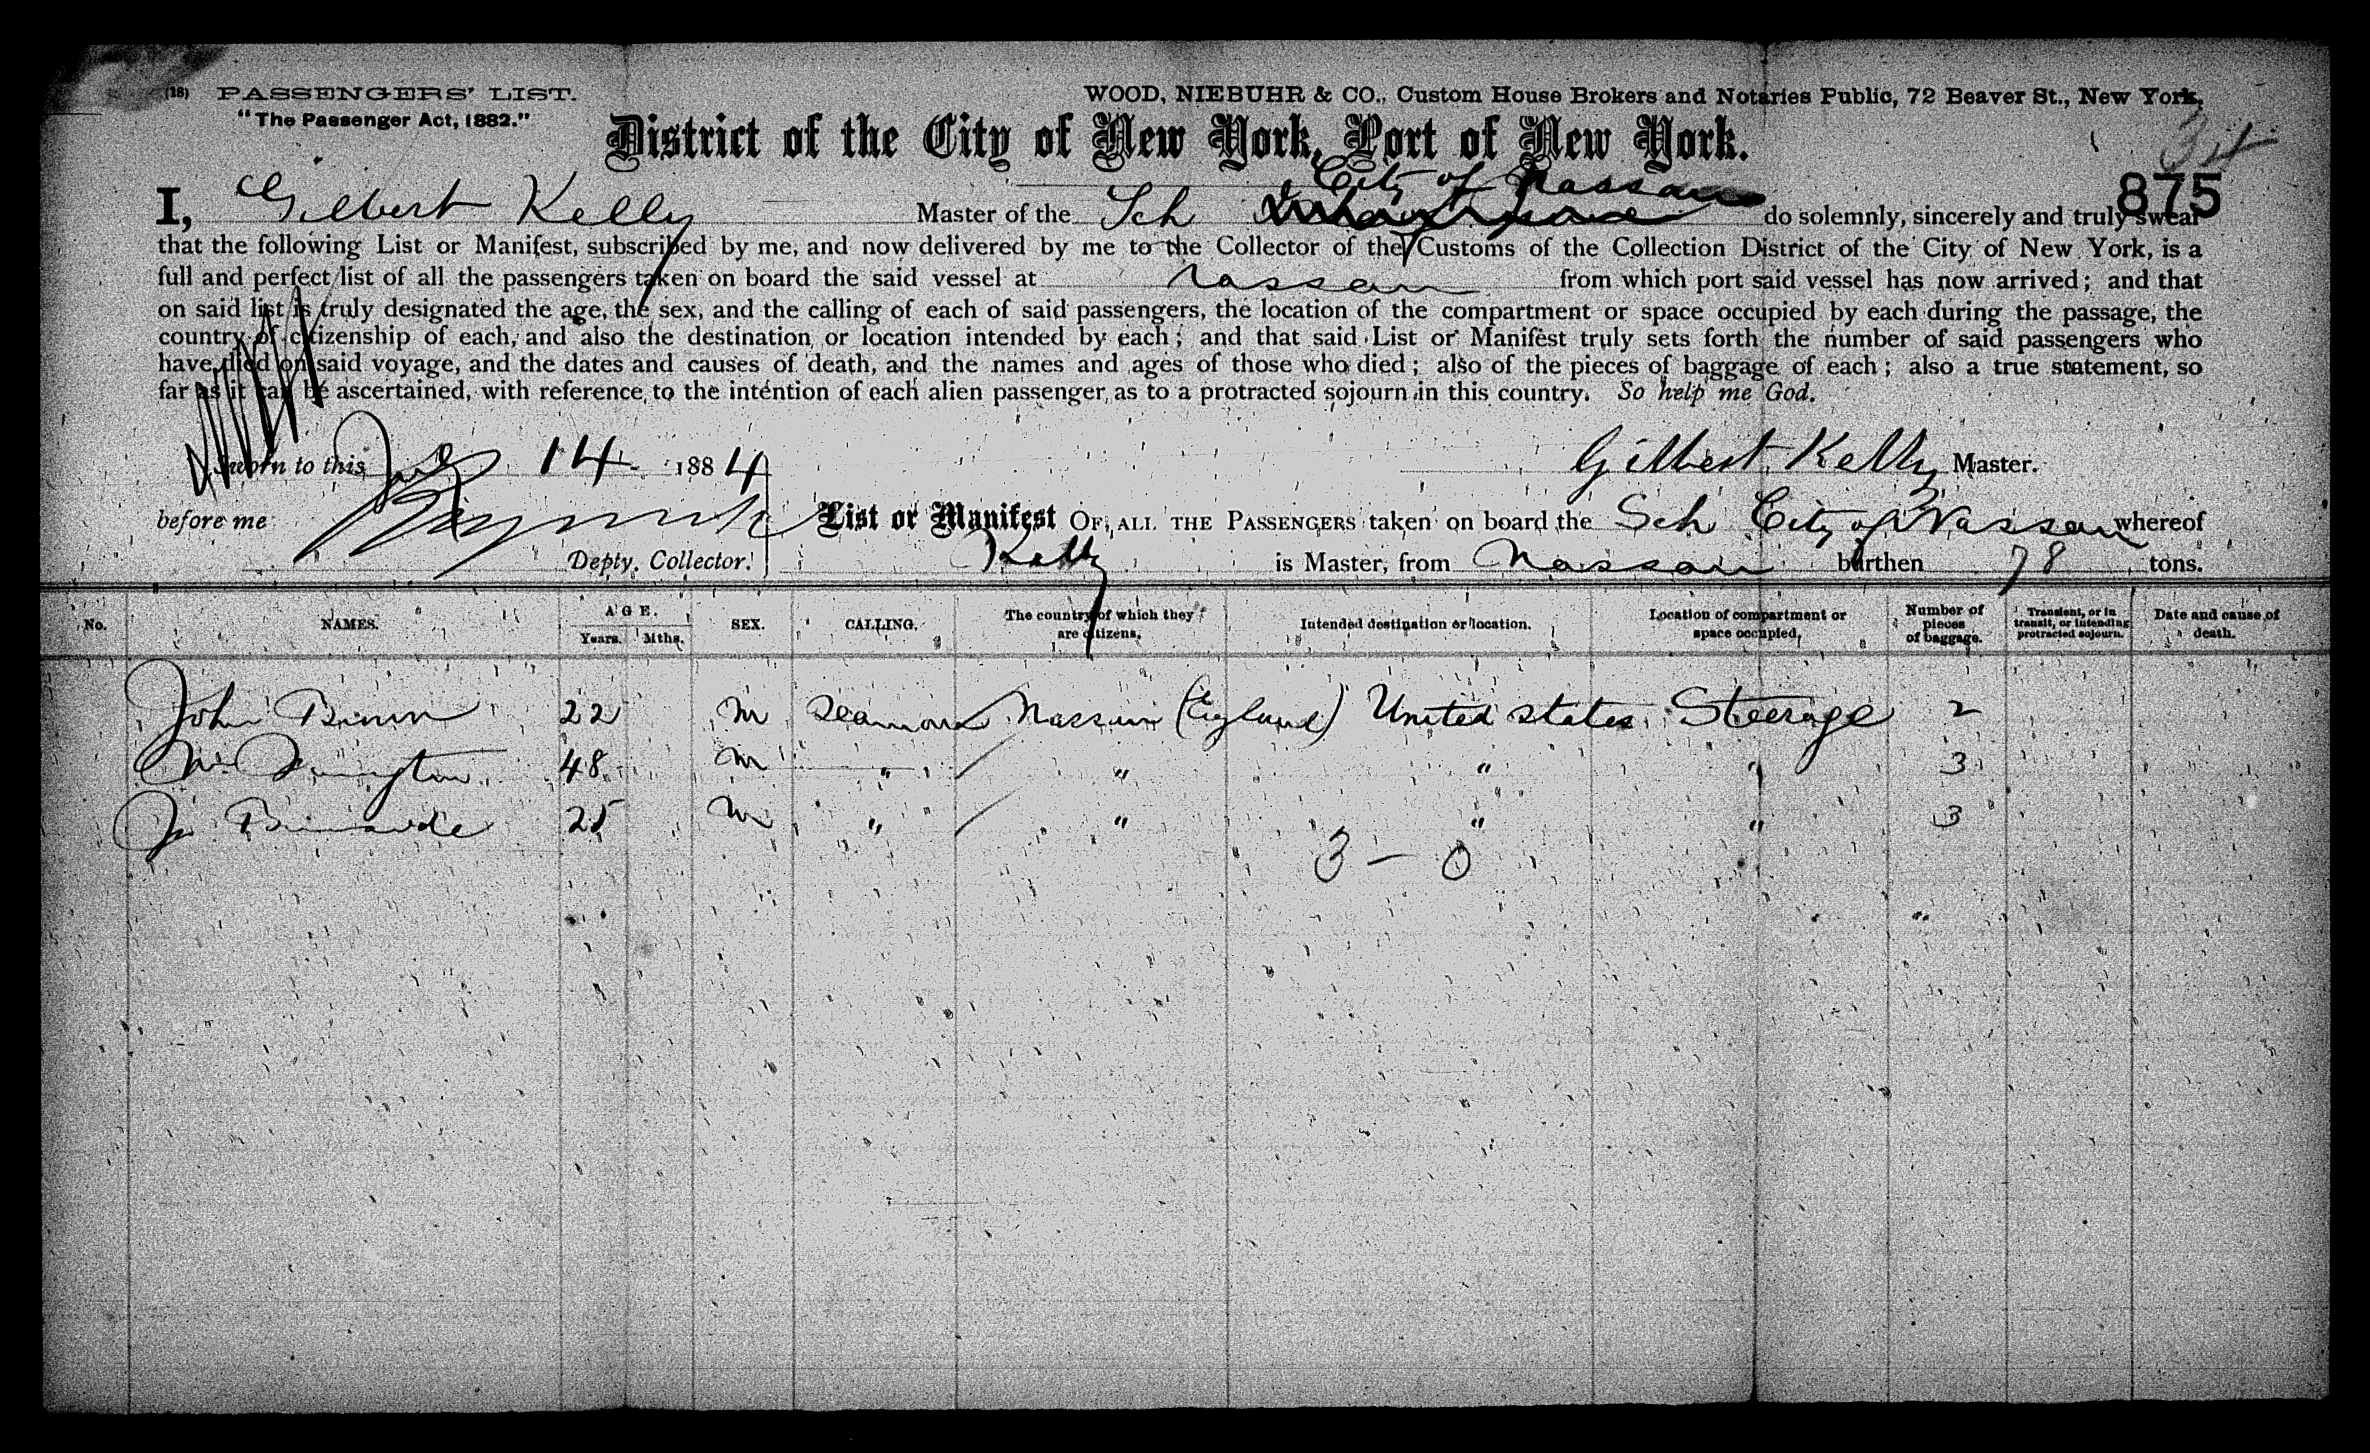 (18) PASSENGERS' LIST.
"The Passenger Act, 1882."
WOOD, NIEBUHR & CO., Custom House Brokers and Notaries Public, 72 Beaver St., New York.
District of the City of New York, Port of New York.
34
875
City of Nassau
I, Gilbert Kelly Master of the Sch do solemnly, sincerely and truly swear
that the following List or Manifest, subscribed by me, and now delivered by me to the Collector of the Customs of the Collection District of the City of New York, is a
full and perfect list of all the passengers taken on board the said vessel at Nassau from which port said vessel has now arrived; and that
on said list is truly designated the age, the sex, and the calling of each of said passengers, the location of the compartment or space occupied by each during the passage, the
country of citizenship of each, and also the destination or location intended by each; and that said List or Manifest truly sets forth the number of said passengers who
have died on said voyage, and the dates and causes of death, and the names and ages of those who died; also of the pieces of baggage of each; also a true statement, so
far as it can be ascertained, with reference to the intention of each alien passenger as to a protracted sojourn in this country. So help me God.
Sworn to this 14 1884
Gilbert Kelly Master.
before me
Depty. Collector.
List or Manifest OF ALL THE PASSENGERS taken on board the Sch City of Nassau whereof
Kelly is Master, from Nassau burthen 78 tons.
No. NAMES. AGE. Years. Mths. SEX. CALLING. The country of which they are citizens. Intended destination or location. Location of compartment or space occupied. Number of pieces of baggage. Transient, or in transit, or intending protracted sojourn. Date and cause of death.
John 22 M Seaman Nassau (England) United states Steerage 2
48 M " " " " 3
25 M " " " " 3
3 – 0